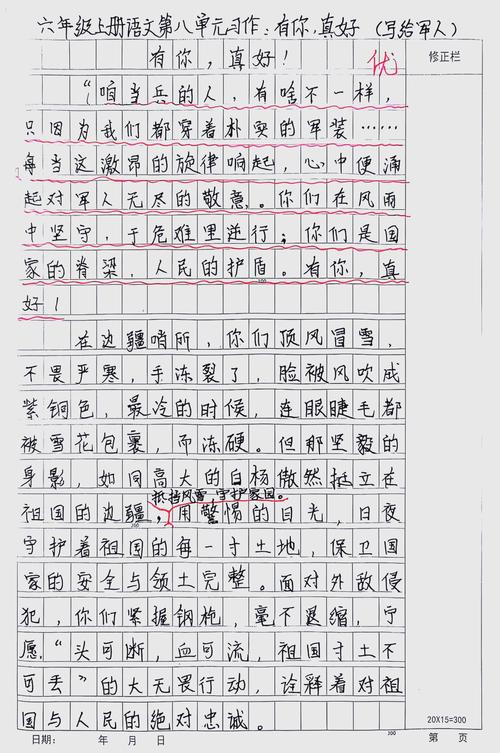 六年级上册语文第八单元习作：有你，真好（写给军人）
有你，真好！
优
修正栏
“咱当兵的人，有啥不一样，
只因为我们都穿着朴实的军装……
每当这激昂的旋律响起，心中便涌
起对军人无尽的敬意。你们在风雨
中坚守，于危难里逆行；你们是国
家的脊梁，人民的护盾。有你，真
好！
在边疆哨所，你们顶风冒雪，
不畏严寒，手冻裂了，脸被风吹成
紫铜色，最冷的时候，连眼睫毛都
被雪花包裹，而冻硬。但那坚毅的
身影，如同高大的白杨傲然挺立在
抵挡风雪，守护家园。
祖国的边疆，用警惕的目光，日夜
守护着祖国的每一寸土地，保卫国
家的安全与领土完整。面对外敌侵
犯，你们紧握钢枪，毫不退缩，宁
愿“头可断，血可流，祖国寸土不
可丢”的大无畏行动，诠释着对祖
国与人民的绝对忠诚。
20X15=300
日期： 年 月 日 300 第 页